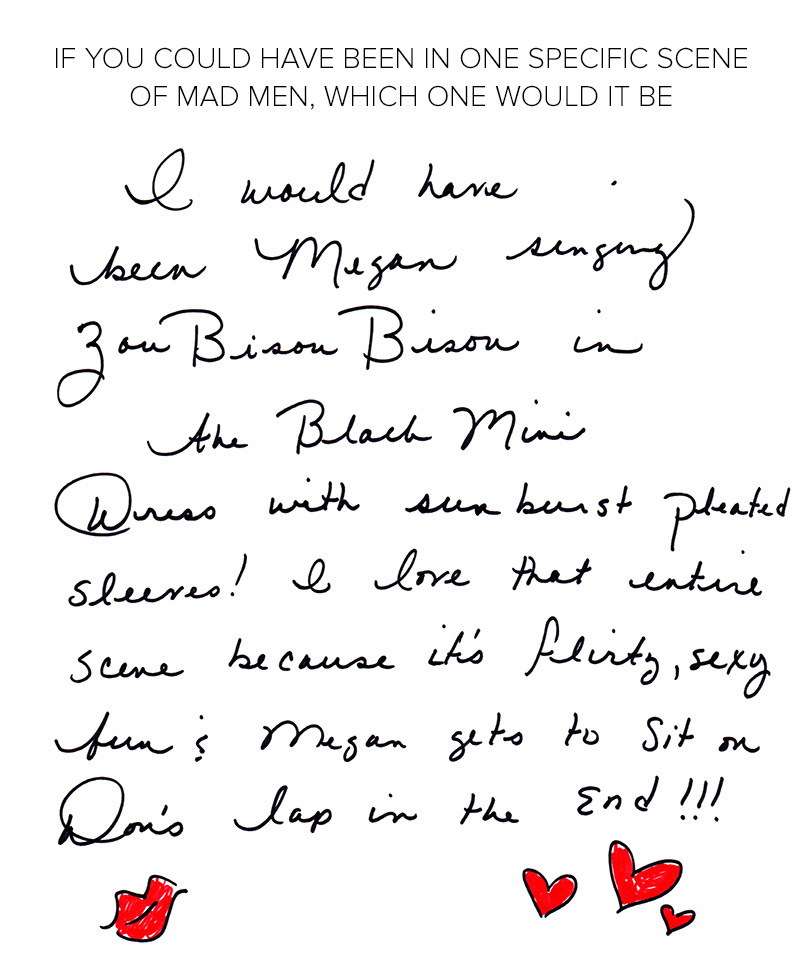 IF YOU COULD HAVE BEEN IN ONE SPECIFIC SCENE
OF MAD MEN, WHICH ONE WOULD IT BE
I would have
been Megan singing
Zou Bisou Bisou in
the Black Mini
Dress with sunburst pleated
sleeves! I love that entire
scene because it's flirty, sexy
fun & Megan gets to Sit on
Don's lap in the End!!!